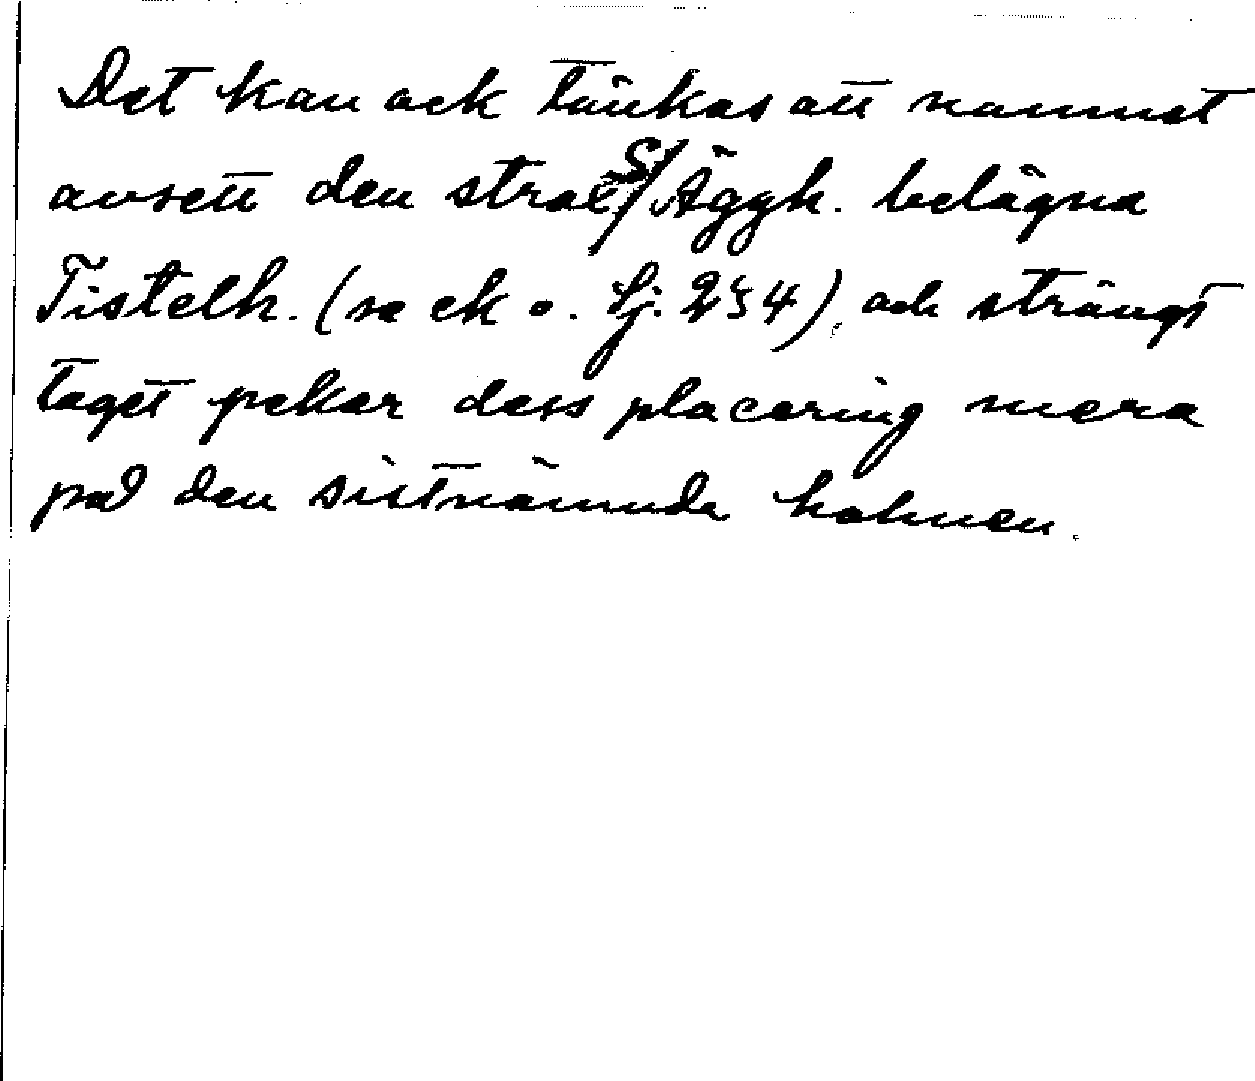 Det kan ock tänkas att namnet
avsett den strax S/ Äggh. belägna
Tistelh. (se ek o. lj. 234), och strängt
taget pekar dess placering mera
på den sistnämnda holmen.